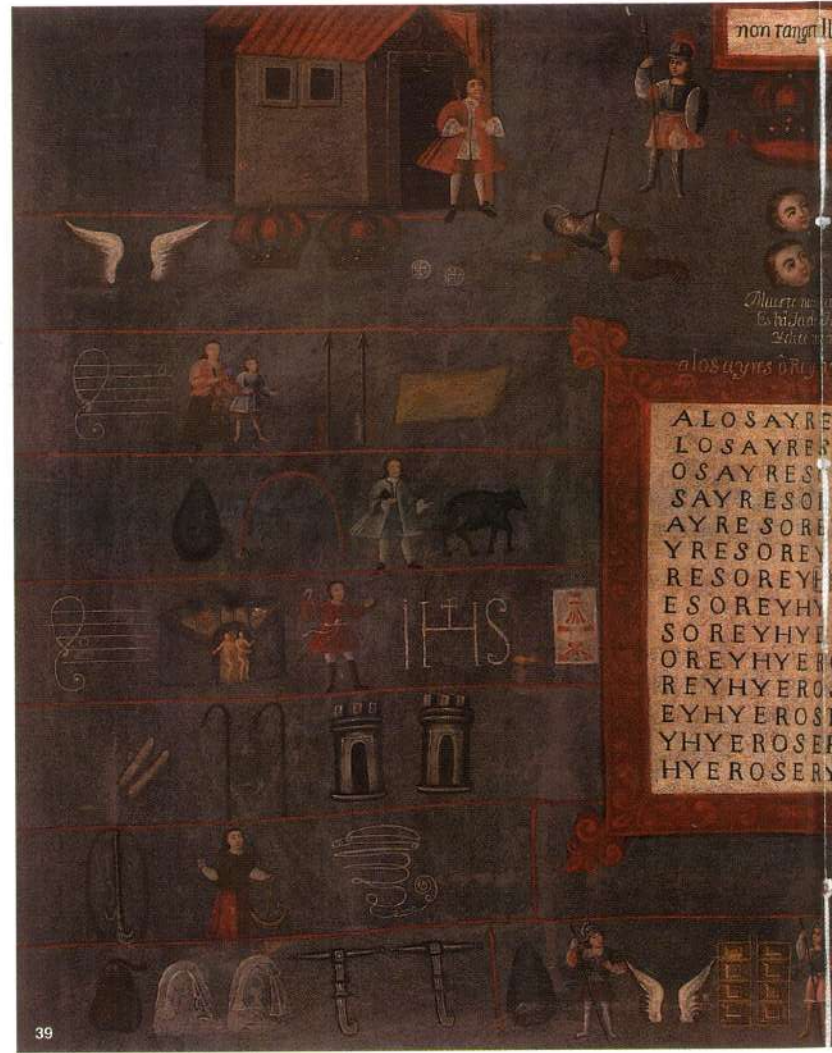 non tangit
Muerte
Es
a los ayres o Rey
ALOSAYRE
LOSAYRES
OSAYRESO
SAYRESOR
AYRESORE
YRESOREY
RESOREYH
ESOREYHY
SOREYHYE
OREYHYER
REYHYERO
EYHYEROS
YHYEROSE
HYEROSERY
IHS
39